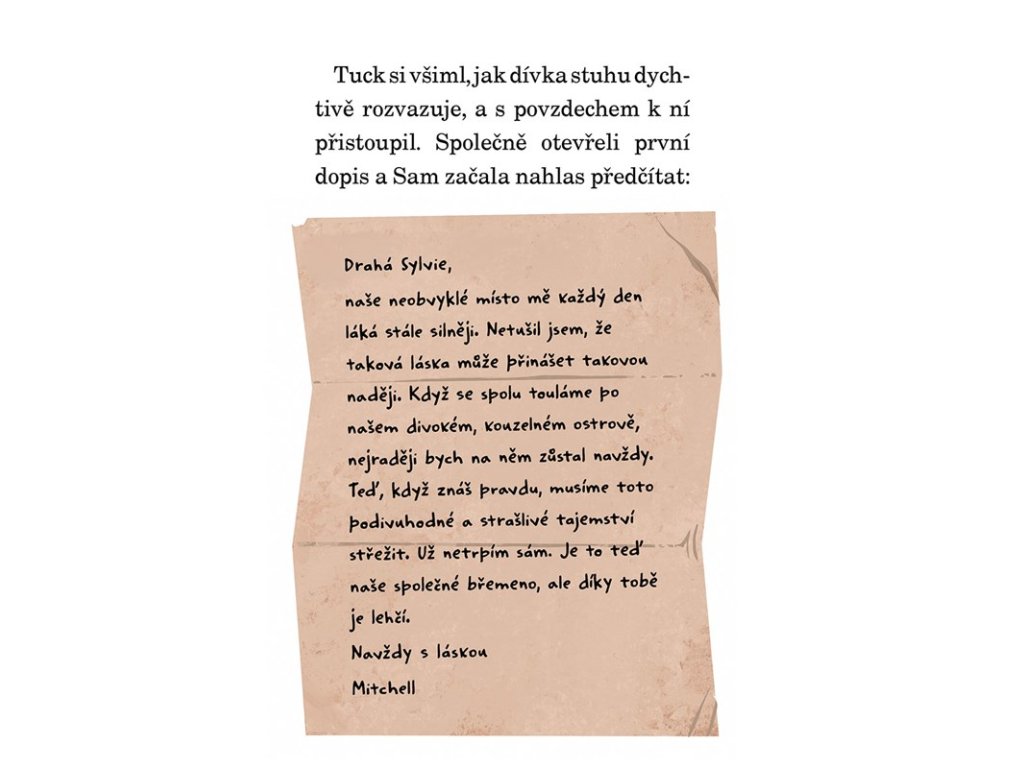 Tuck si všiml, jak dívka stuhu dych-
tivě rozvazuje, a s povzdechem k ní
přistoupil. Společně otevřeli první
dopis a Sam začala nahlas předčítat:
Drahá Sylvie,
naše neobvyklé místo mě každý den
láká stále silněji. Netušil jsem, že
taková láska může přinášet takovou
naději. Když se spolu touláme po
našem divokém, kouzelném ostrově,
nejraději bych na něm zůstal navždy.
Teď, když znáš pravdu, musíme toto
podivuhodné a strašlivé tajemství
střežit. Už netrpím sám. Je to teď
naše společné břemeno, ale díky tobě
je lehčí.
Navždy s láskou
Mitchell